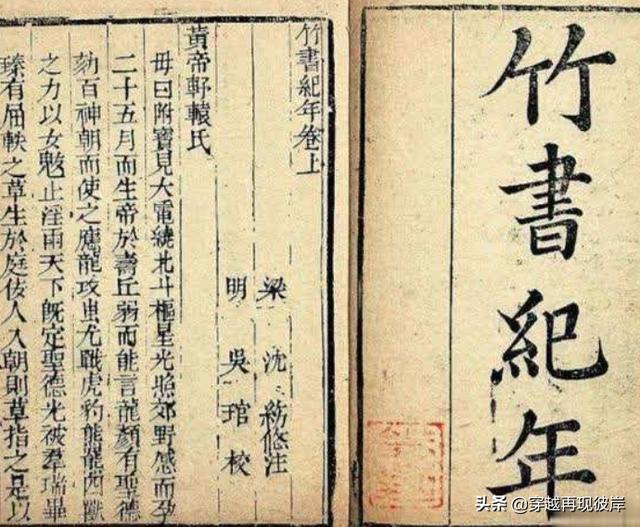 竹書紀年
竹書紀年卷上
梁 沈 約 注
明 吳 琯 校
黃帝軒轅氏
母曰附寶見大電繞北斗樞星光照郊野感而孕
二十五月而生帝於壽丘弱而能言龍顏有聖德
劾百神朝而使之應龍攻蚩尤戰虎豹熊羆四獸
之力以女魃止淫雨天下既定聖德光被羣瑞畢
臻有屈軼之草生於庭佞人入朝則草指之是以
头条 @穿越再现彼岸